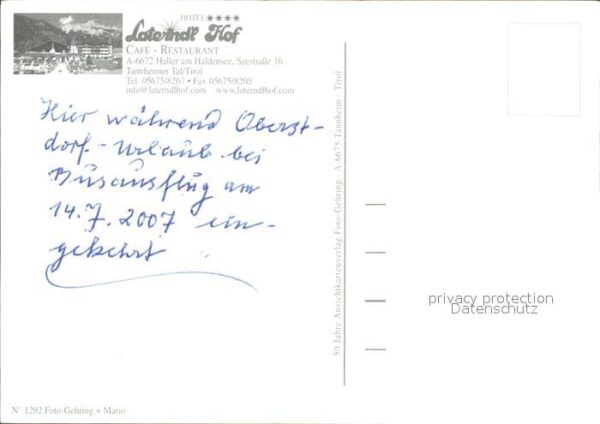 HOTEL ★★★★
Laterndl Hof
CAFÉ - RESTAURANT
A-6672 Haller am Haldensee, Seestraße 16
Tannheimer Tal/Tirol
Tel. 05675/8267 • Fax 05675/8205
info@laterndlhof.com www.laterndlhof.com
Hier während Oberst-
dorf-Urlaub bei
Busausflug am
14.7.2007 ein-
gekehrt
50 Jahre Ansichtkartenverlag Foto-Gehring · A-6675 Tannheim · Tirol
privacy protection
Datenschutz
N° 1292 Foto-Gehring + Mario